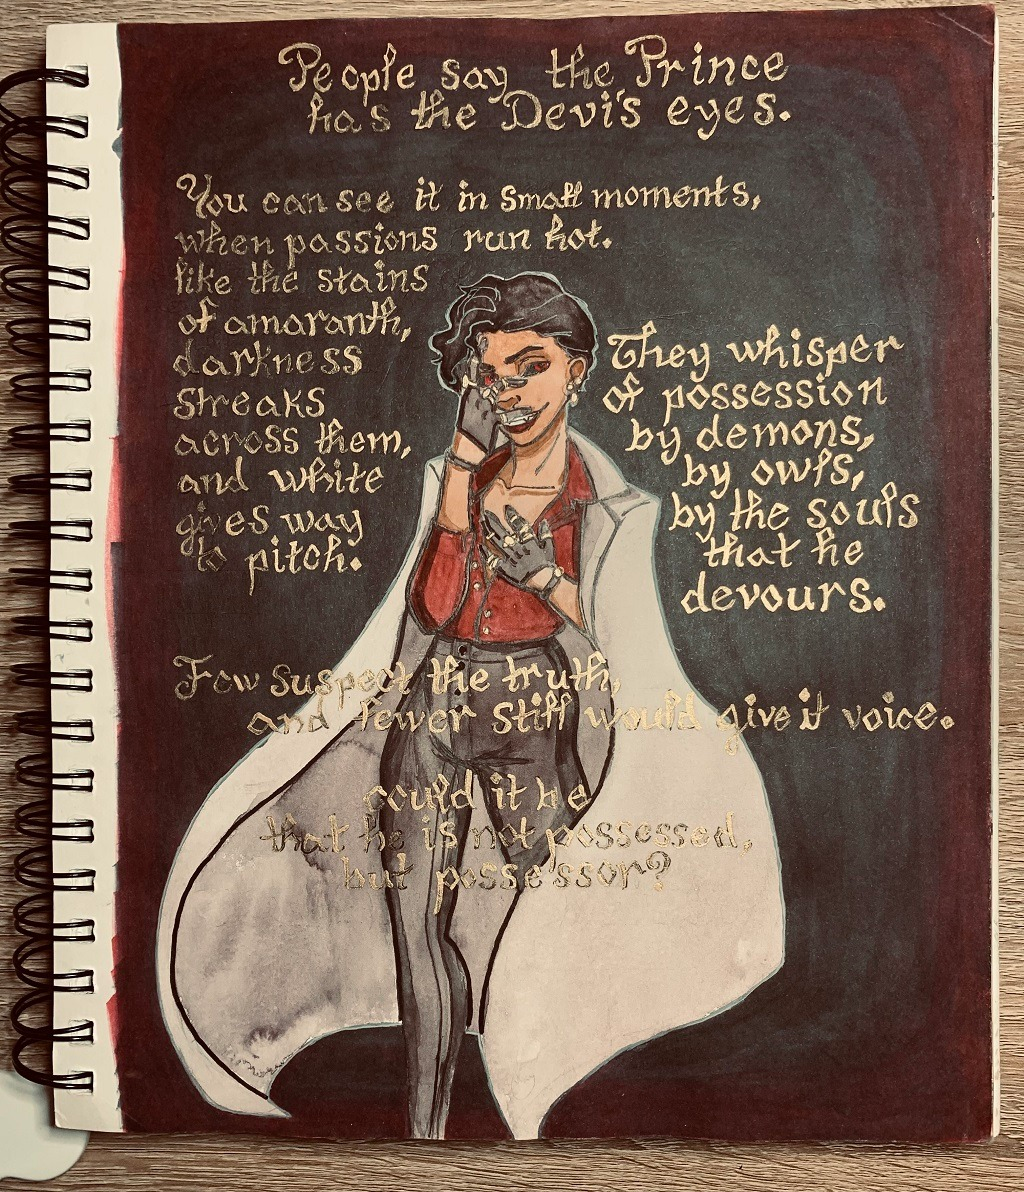 People say the Prince
has the Devi's eyes.
You can see it in small moments,
when passions run hot.
like the stains
of amaranth,
darkness
streaks
across them,
and white
gives way
to pitch.
They whisper
of possession
by demons,
by owls,
by the souls
that he
devours.
Few suspect the truth,
and fewer still would give it voice.
could it be
that he is not possessed,
but possessor?